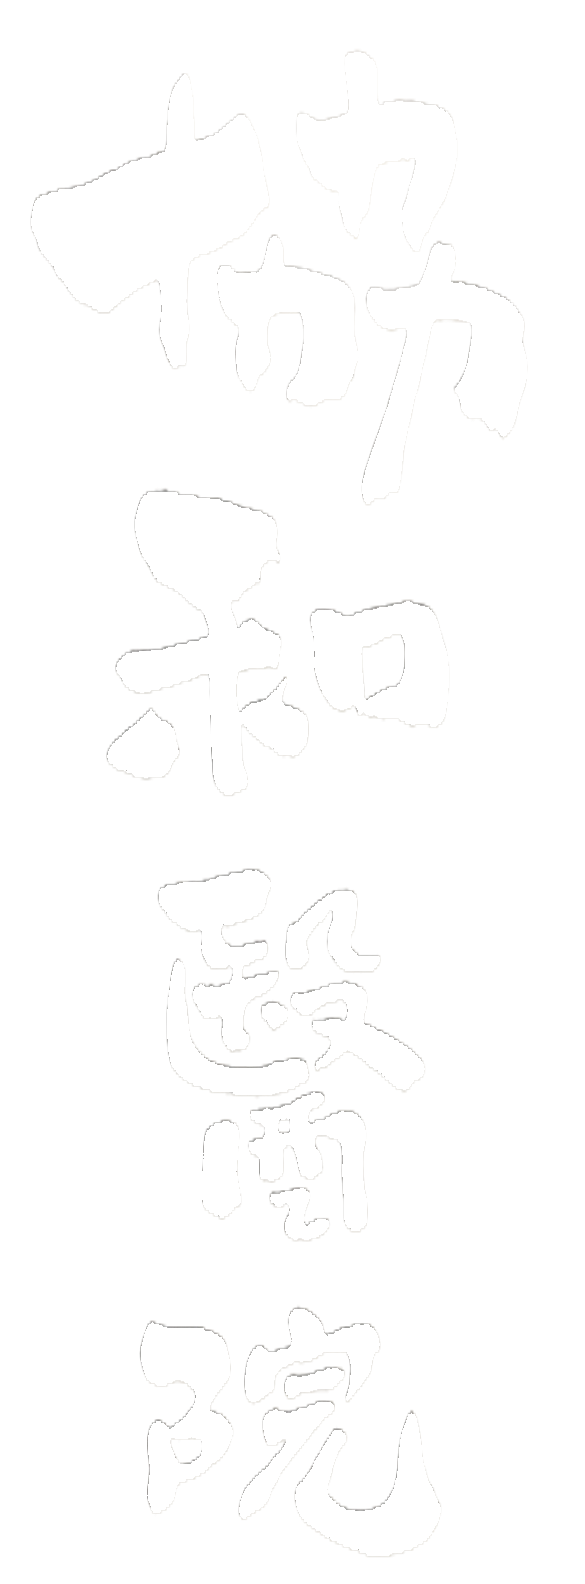 協和醫院